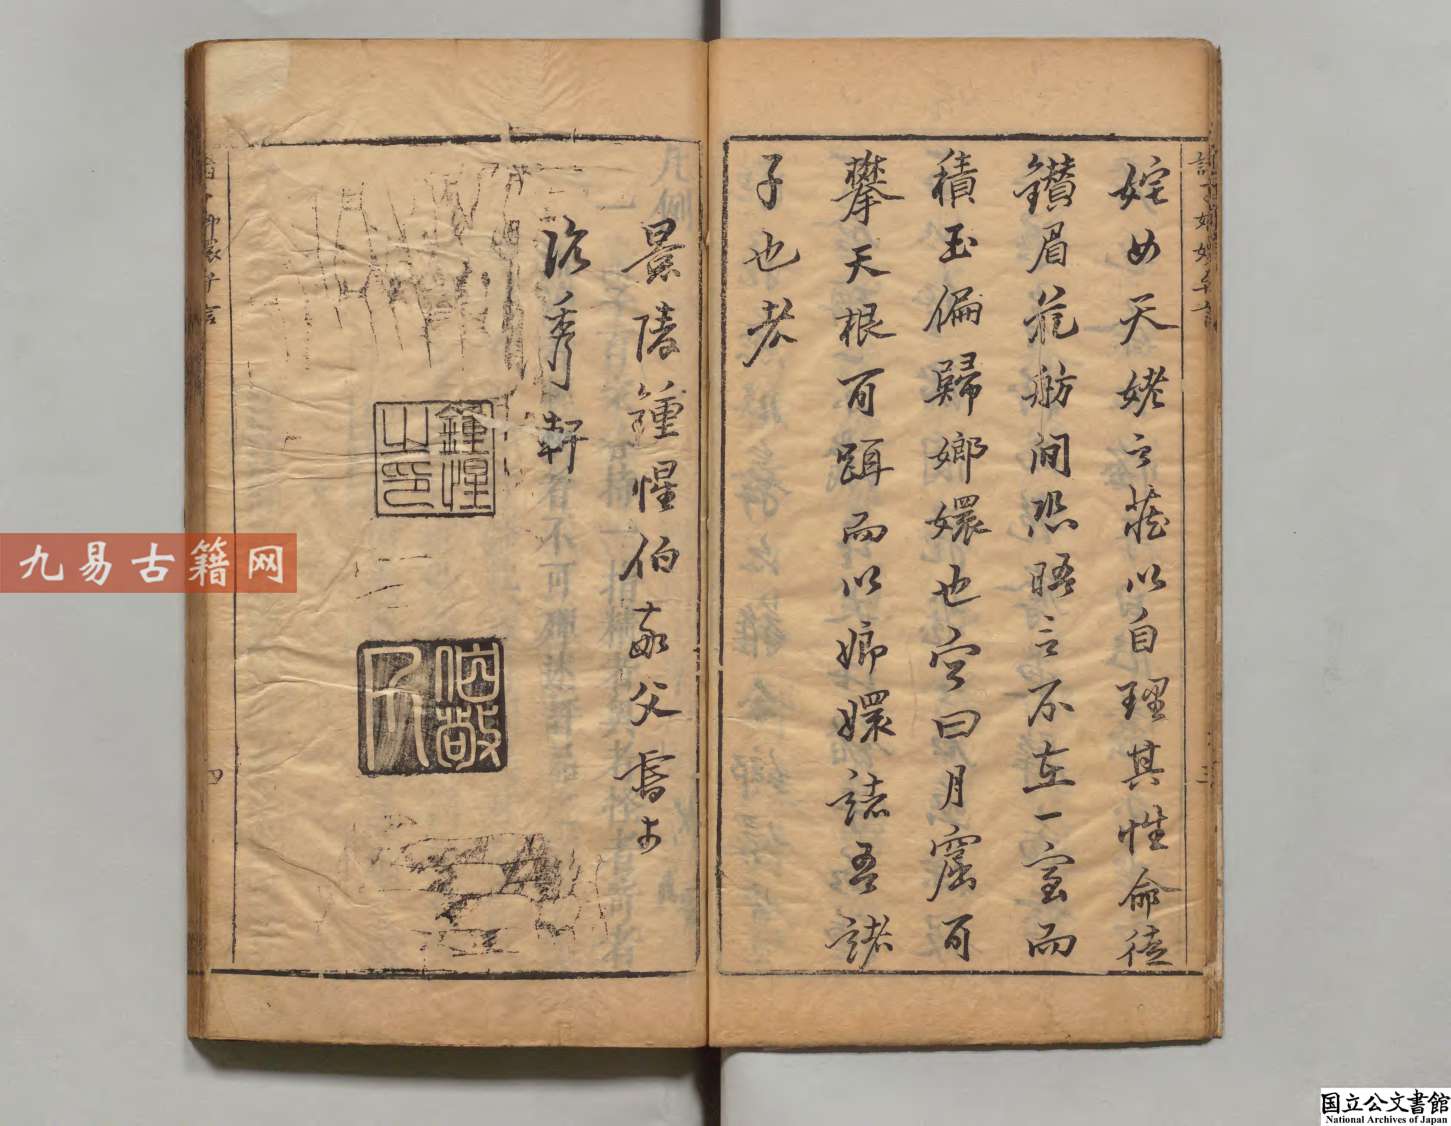 姹女天姥之藏以自理其性命徒
鑚眉苑舫间恐晤言不在一室而
積玉偏歸嫏嬛也它曰月窟可
攀天根可躡而以嫏嬛諸吾諸
子也者
景陵鍾惺伯敬父書于
沿秀軒
鍾惺
之印
伯敬
氏
三
四
九易古籍网
国立公文書館
National Archives of Japan